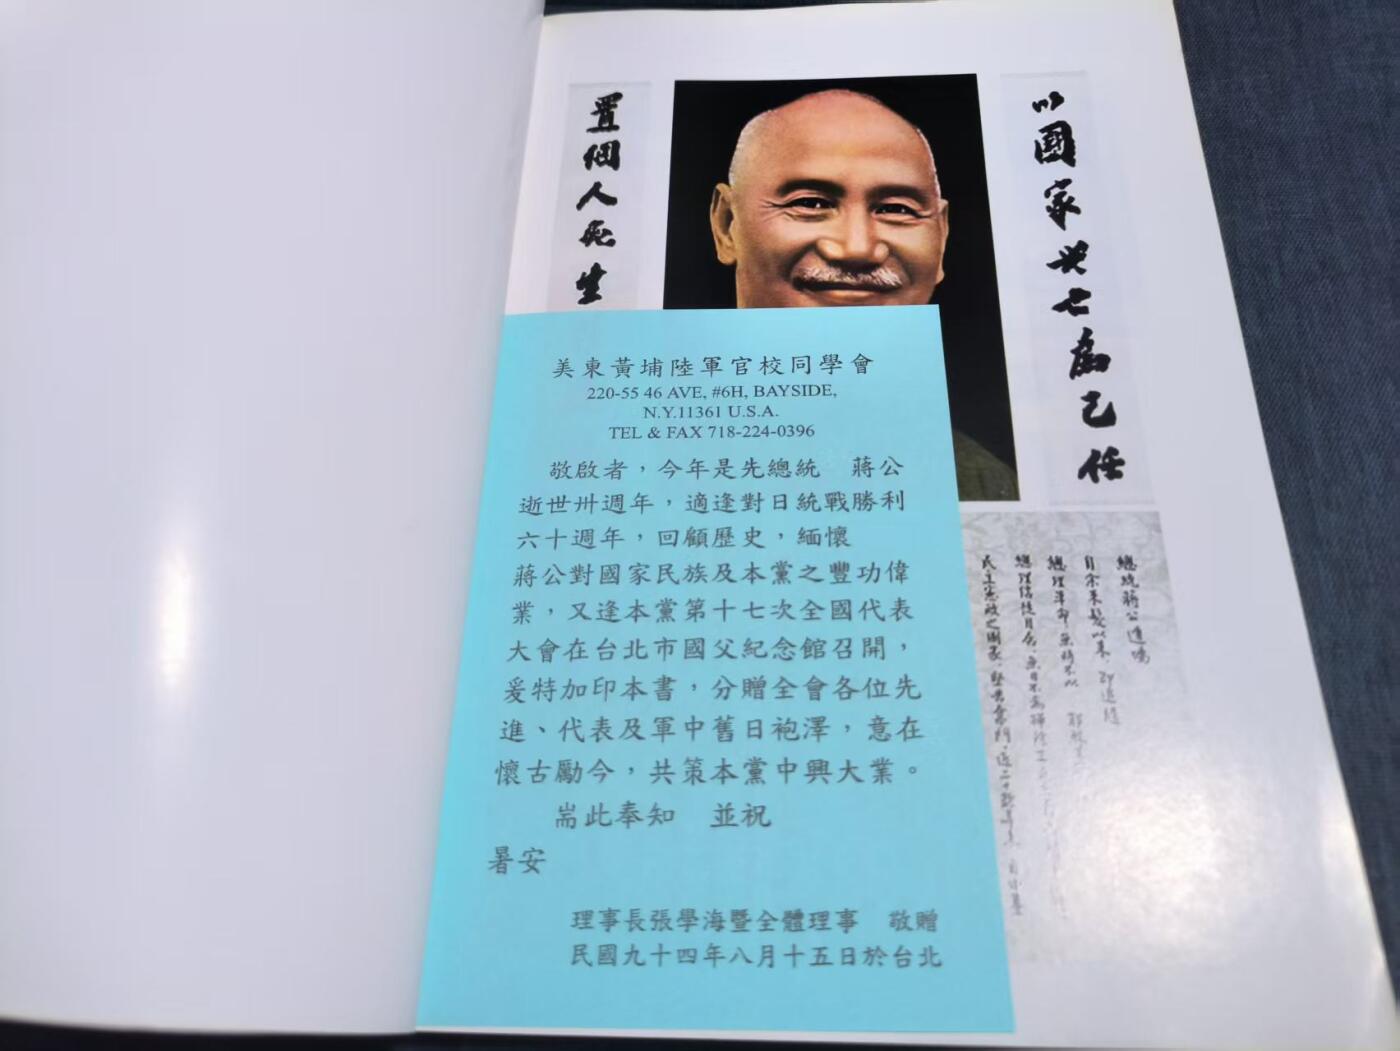 以國家興亡為己任
置個人死生
美東黃埔陸軍官校同學會
220-55 46 AVE, #6H, BAYSIDE,
N.Y.11361 U.S.A.
TEL & FAX 718-224-0396
敬啟者，今年是先總統 蔣公
逝世卅週年，適逢對日統戰勝利
六十週年，回顧歷史，緬懷
蔣公對國家民族及本黨之豐功偉
業，又逢本黨第十七次全國代表
大會在台北市國父紀念館召開，
爰特加印本書，分贈全會各位先
進、代表及軍中舊日袍澤，意在
懷古勵今，共策本黨中興大業。
耑此奉知 並祝
暑安
理事長張學海暨全體理事 敬贈
民國九十四年八月十五日於台北
總統蔣公遺囑
自余束髮以來 即追隨
總理革命 無時不以
總理信徒自居 無日不為
民主憲政之國家